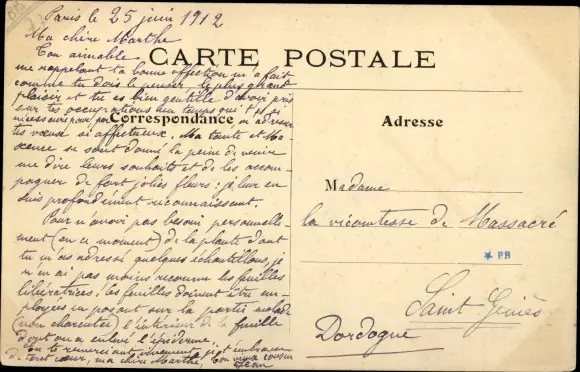 Paris le 25 juin 1912
Ma chère Marthe
Ton aimable
CARTE POSTALE
me rappelant ta bonne affection m'a fait
comme tu dois le penser le plus grand
plaisir et tu es bien gentille d'avoir pris
sur tes occupations un temps qui t'est
nécessaire pour m'adresser
Correspondance
tes vœux si affectueux. Ma tante et
se sont donné la peine de venir
me dire leurs souhaits et de les accom-
pagner de fort jolies fleurs : je leur en
suis profondément reconnaissant.
Pour n'avoir pas besoin personnelle-
ment (en ce moment) de la plante dont
tu m'as adressé quelques échantillons, je
n'en ai pas moins reconnu les feuilles
libératrices : les feuilles doivent être em-
ployées en posant sur la partie malade
(non charcutée) l'intérieur de la feuille
dont on a enlevé l'épiderme.
En te remerciant vivement je t'embrasse
de tout cœur, ma chère Marthe, Ton vieux cousin
Jean
Adresse
Madame
la vicomtesse de Massacré
PR
Saint Geniès
Dordogne